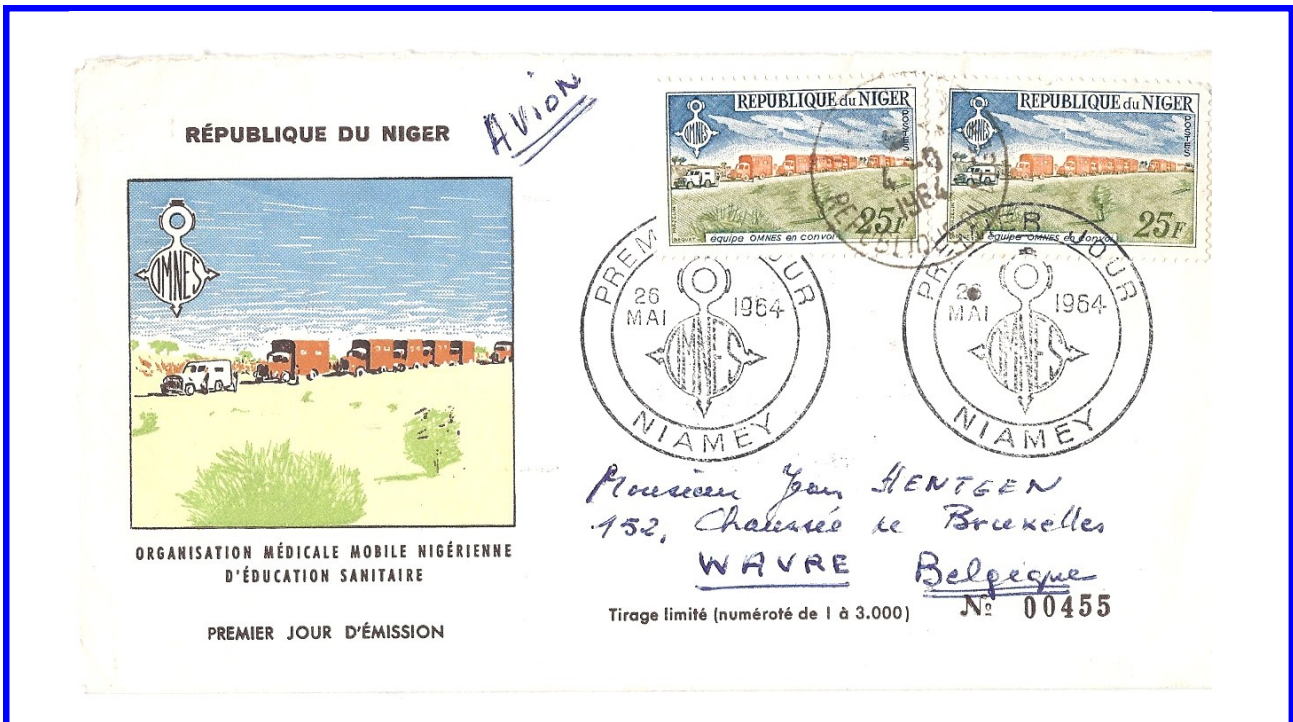 RÉPUBLIQUE DU NIGER
Avion
OMNES
ORGANISATION MÉDICALE MOBILE NIGÉRIENNE
D'ÉDUCATION SANITAIRE
PREMIER JOUR D'ÉMISSION
REPUBLIQUE du NIGER
POSTES
OMNES
25F
équipe OMNES en convoi
BEQUET
REPUBLIQUE du NIGER
POSTES
OMNES
25F
équipe OMNES en convoi
4-9
1964
REPUBLIQUE
PREMIER JOUR
26 MAI 1964
OMNES
NIAMEY
PREMIER JOUR
26 MAI 1964
OMNES
NIAMEY
Monsieur Jean HENTGEN
152, Chaussée de Bruxelles
WAVRE Belgique
Tirage limité (numéroté de 1 à 3.000) Nº 00455